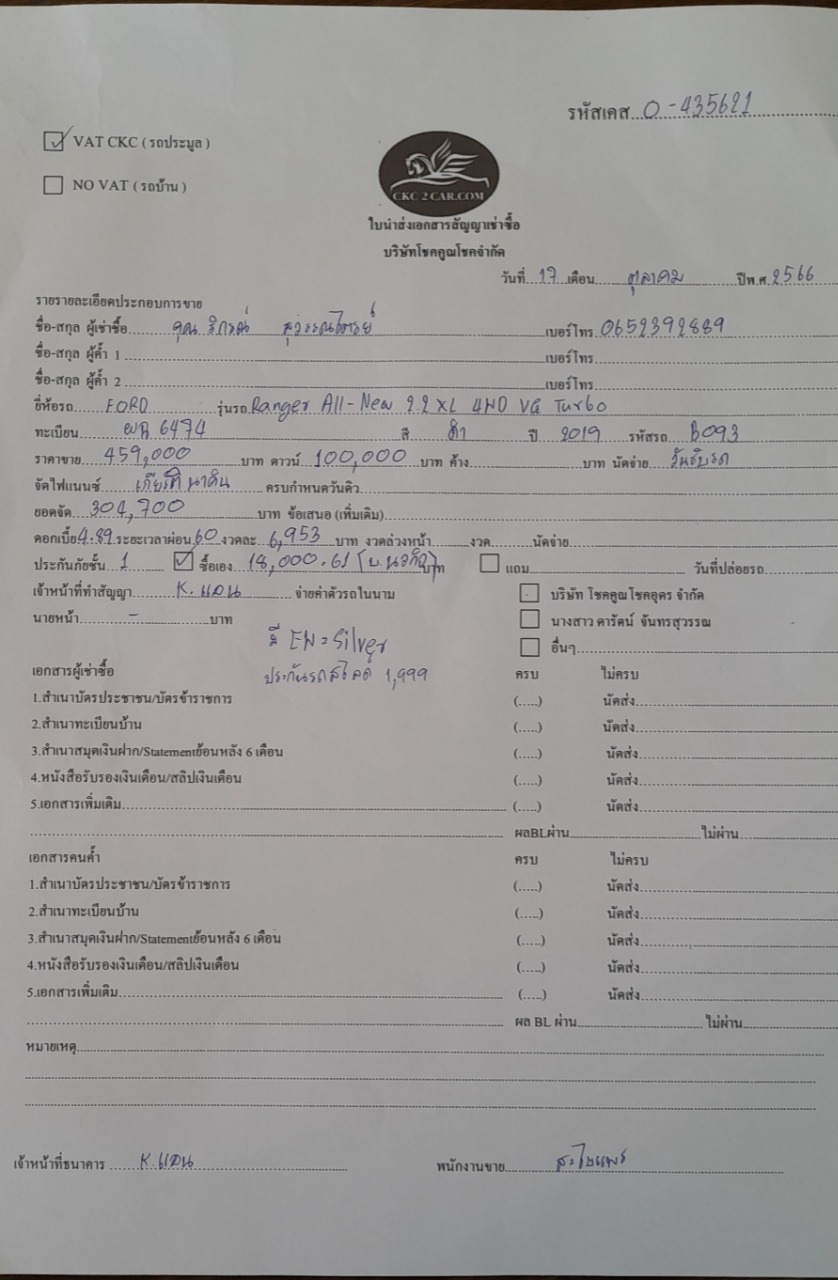 รหัสเคส...0-435621
☑ VAT CKC ( รถประมูล )
☐ NO VAT ( รถบ้าน )
CKC 2 CAR.COM
ใบนำส่งเอกสารสัญญาเช่าซื้อ
บริษัทโชคคูณโชคจำกัด
วันที่ 17 เดือน ตุลาคม ปีพ.ศ. 2566
รายรายละเอียดประกอบการขาย
ชื่อ-สกุล ผู้เช่าซื้อ คุณ เบอร์โทร 0652392889
ชื่อ-สกุล ผู้ค้ำ 1 เบอร์โทร
ชื่อ-สกุล ผู้ค้ำ 2 เบอร์โทร
ยี่ห้อรถ FORD รุ่นรถ Ranger All-New 2.2 XL 4WD VG Turbo
ทะเบียน 6474 สี ดำ ปี 2019 รหัสรถ B093
ราคาขาย 459,000 บาท ดาวน์ 100,000 บาท ค้าง บาท นัดจ่าย วันรับรถ
จัดไฟแนนซ์ เกียรตินาคิน ครบกำหนดวันคิว
ยอดจัด 304,700 บาท ข้อเสนอ (เพิ่มเติม)
ดอกเบี้ย 4.89 ระยะเวลาผ่อน 60 งวดละ 6,953 บาท งวดล่วงหน้า งวด นัดจ่าย
ประกันภัยชั้น 1 ☑ ซื้อเอง 18,000.61 บาท ☐ แถม วันที่ปล่อยรถ
เจ้าหน้าที่ทำสัญญา K. แอน จ่ายค่าตัวรถในนาม ☐ บริษัท โชคคูณโชคอุดร จำกัด
นายหน้า - บาท ☐ นางสาว ดารัตน์ จันทรสุวรรณ
มี EW = Silver ☐ อื่นๆ
ประกันรถสไลด์ 1,999
เอกสารผู้เช่าซื้อ ครบ ไม่ครบ
1.สำเนาบัตรประชาชน/บัตรข้าราชการ (.....) นัดส่ง
2.สำเนาทะเบียนบ้าน (.....) นัดส่ง
3.สำเนาสมุดเงินฝาก/Statementย้อนหลัง 6 เดือน (.....) นัดส่ง
4.หนังสือรับรองเงินเดือน/สลิปเงินเดือน (.....) นัดส่ง
5.เอกสารเพิ่มเติม (.....) นัดส่ง
ผลBLผ่าน ไม่ผ่าน
เอกสารคนค้ำ ครบ ไม่ครบ
1.สำเนาบัตรประชาชน/บัตรข้าราชการ (.....) นัดส่ง
2.สำเนาทะเบียนบ้าน (.....) นัดส่ง
3.สำเนาสมุดเงินฝาก/Statementย้อนหลัง 6 เดือน (.....) นัดส่ง
4.หนังสือรับรองเงินเดือน/สลิปเงินเดือน (.....) นัดส่ง
5.เอกสารเพิ่มเติม (.....) นัดส่ง
ผล BL ผ่าน ไม่ผ่าน
หมายเหตุ
เจ้าหน้าที่ธนาคาร K. แอน พนักงานขาย